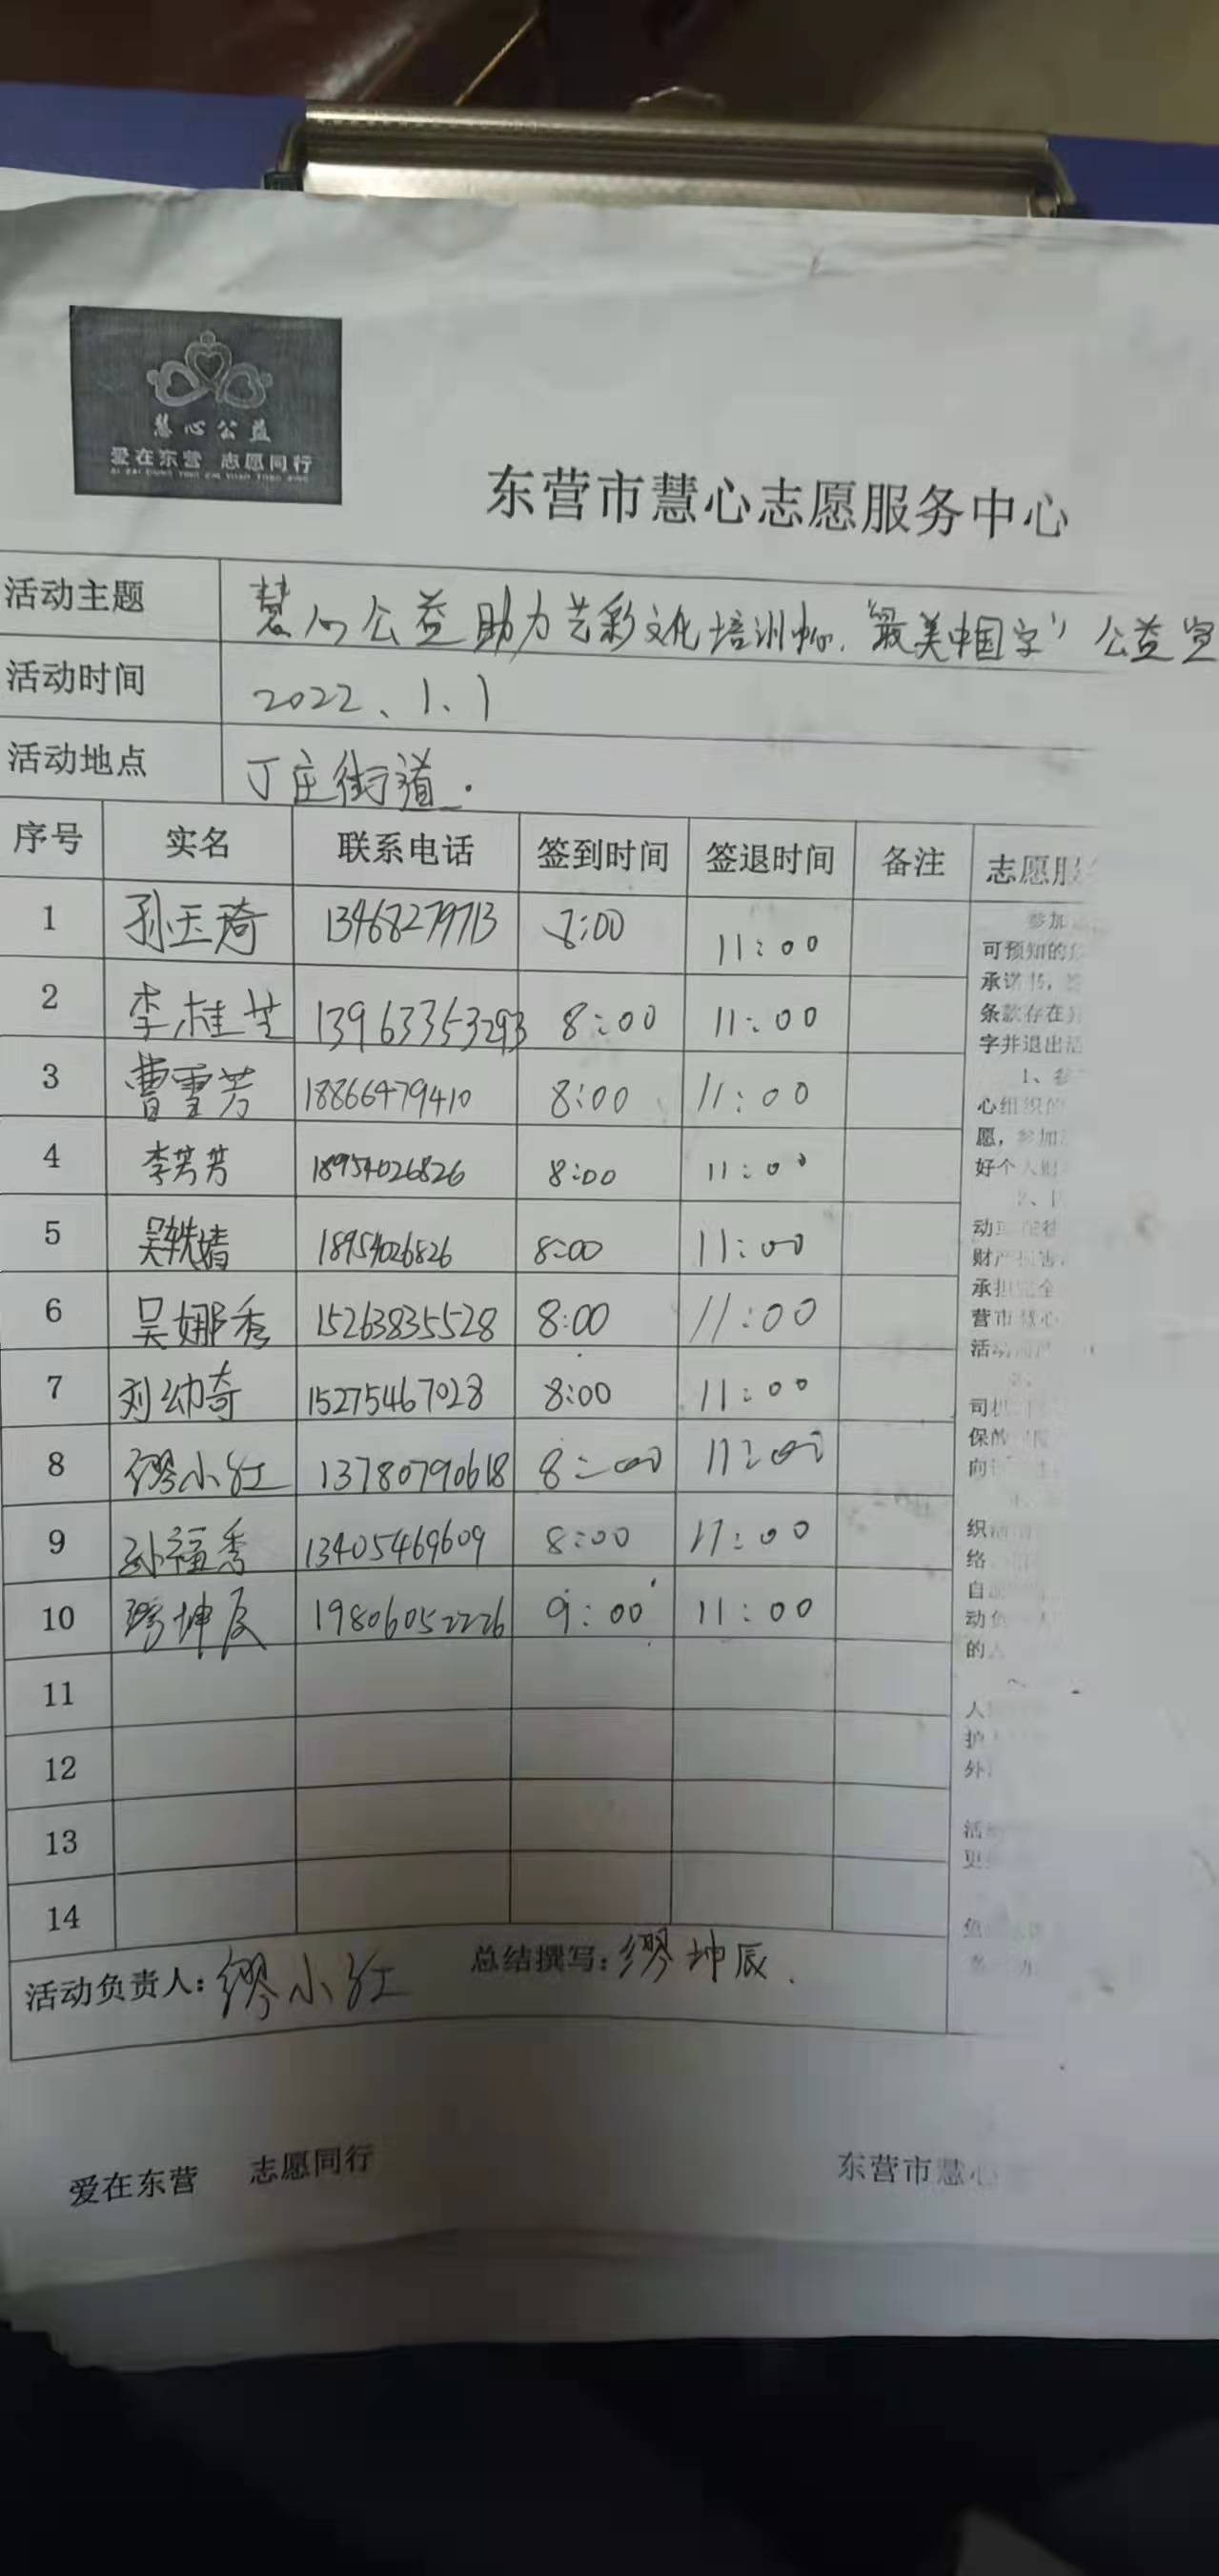 慧心公益
爱在东营 志愿同行
AI ZAI DONG YING ZHI YUAN TONG XING
东营市慧心志愿服务中心
活动主题 慧心公益助力艺彩文化培训中心.“最美中国字”公益
活动时间 2022、1、1
活动地点 丁庄街道.
序号 实名 联系电话 签到时间 签退时间 备注 志愿服
1 孙玉琦 13468279713 8:00 11:00
2 李桂芝 13963353293 8:00 11:00
3 曹雪芳 18866479410 8:00 11:00
4 李芳芳 18954026826 8:00 11:00
5 吴轶婧 18954026826 8:00 11:00
6 吴娜秀 15263835528 8:00 11:00
7 刘幼奇 15275467028 8:00 11:00
8 缪小红 13780790618 8:00 11:00
9 孙福秀 13405469609 8:00 11:00
10 缪坤辰 19806052226 9:00 11:00
11
12
13
14
参加
可预知的
承诺书,
条款存在
字并退出活
1、参
心组织的
愿,参加
好个人财
2、
动
财产损害
承担完全
营市慧心
活动
司机
保的
向
织
络
自
动负
的人
人
护
外
活
更
活动负责人:缪小红 总结撰写:缪坤辰.
爱在东营 志愿同行 东营市慧心